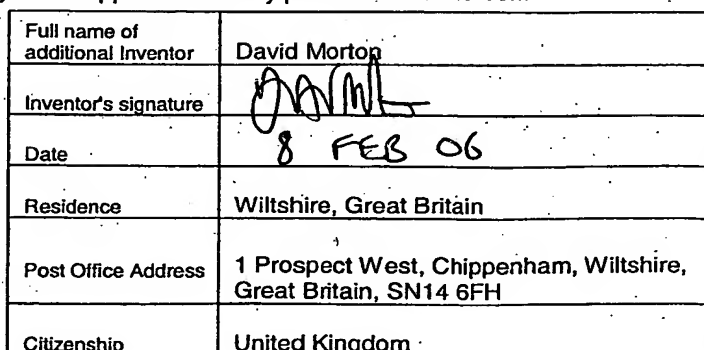 Full name of
additional Inventor
David Morton
Inventor's signature
Date
8 FEB 06
Residence
Wiltshire, Great Britain
Post Office Address
1 Prospect West, Chippenham, Wiltshire,
Great Britain, SN14 6FH
Citizenship
United Kingdom